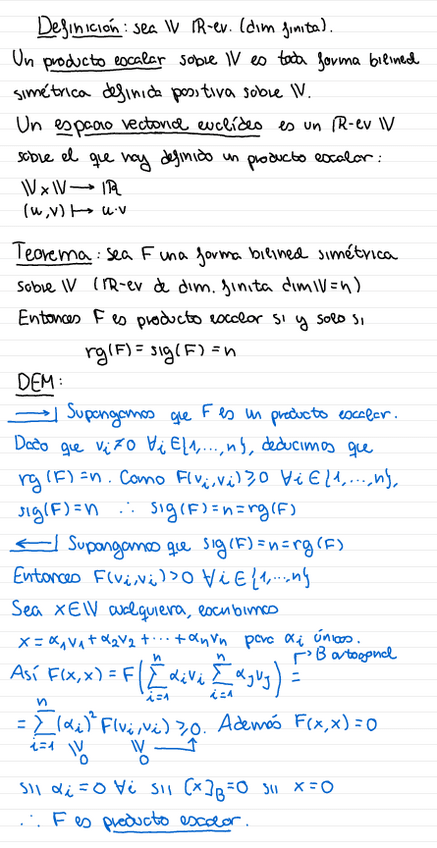 Definición: sea V ℝ-ev. (dim finita).
Un producto escalar sobre V es toda forma bilineal
simétrica definida positiva sobre V.
Un espacio vectorial euclídeo es un ℝ-ev V
sobre el que hay definido un producto escalar:
V×V → ℝ
(u,v) ↦ u·v
Teorema: sea F una forma bilineal simétrica
sobre V (ℝ-ev de dim. finita dim V=n)
Entonces F es producto escalar si y solo si
rg(F)=sig(F)=n
DEM:
→ Supongamos que F es un producto escalar.
Dado que vᵢ≠0 ∀i∈{1,...,n}, deducimos que
rg(F)=n. Como F(vᵢ,vᵢ)≥0 ∀i∈{1,...,n},
sig(F)=n ∴ sig(F)=n=rg(F)
← Supongamos que sig(F)=n=rg(F)
Entonces F(vᵢ,vᵢ)>0 ∀i∈{1,...,n}
Sea x∈V cualquiera, escribimos
x=α₁v₁+α₂v₂+···+αₙvₙ para αᵢ únicos.
B ortogonal
Así F(x,x)=F(∑ⁿᵢ₌₁ αᵢvᵢ ∑ⁿᵢ₌₁ αⱼvⱼ) =
=∑ⁿᵢ₌₁ (αᵢ)² F(vᵢ,vᵢ)≥0. Además F(x,x)=0
≥0 ≥0
sii αᵢ=0 ∀i sii [x]_B=0 sii x=0
∴ F es producto escalar.